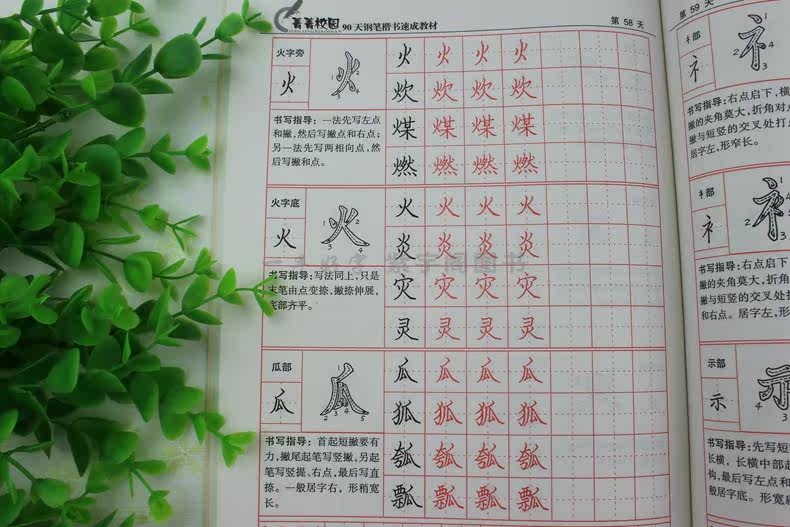 菁菁校园
90 天钢笔楷书速成教材
第 58 天
火字旁
火
书写指导：一法先写左点
和撇，然后写撇点和右点；
另一法先写两相向点，然
后写撇和点。
火 火 火 火
炊 炊 炊 炊
煤 煤 煤 煤
燃 燃 燃 燃
火字底
火
书写指导：写法同上，只是
末笔由点变捺，撇捺伸展，
底部齐平。
火 火 火 火
炎 炎 炎 炎
灾 灾 灾 灾
灵 灵 灵 灵
瓜部
瓜
书写指导：首起短撇要有
力，撇尾起笔写竖撇，另起
笔写竖提、右点，最后写直
捺。一般居字右，形稍宽
长。
瓜 瓜 瓜 瓜
狐 狐 狐 狐
瓠 瓠 瓠 瓠
瓢 瓢 瓢 瓢
第 59 天
礻部
礻
书写指导：右点启下，横
撇的夹角莫大，折角对点
撇与短竖的交叉处打点
居字左，形窄长。
衤部
衤
书写指导：右点启下
撇的夹角莫大，折角
撇与短竖的交叉处
和右点。居字左，形
示部
示
书写指导：先写短
长横，长横中部起
钩，最后写左点和
般居字底。形宽扁